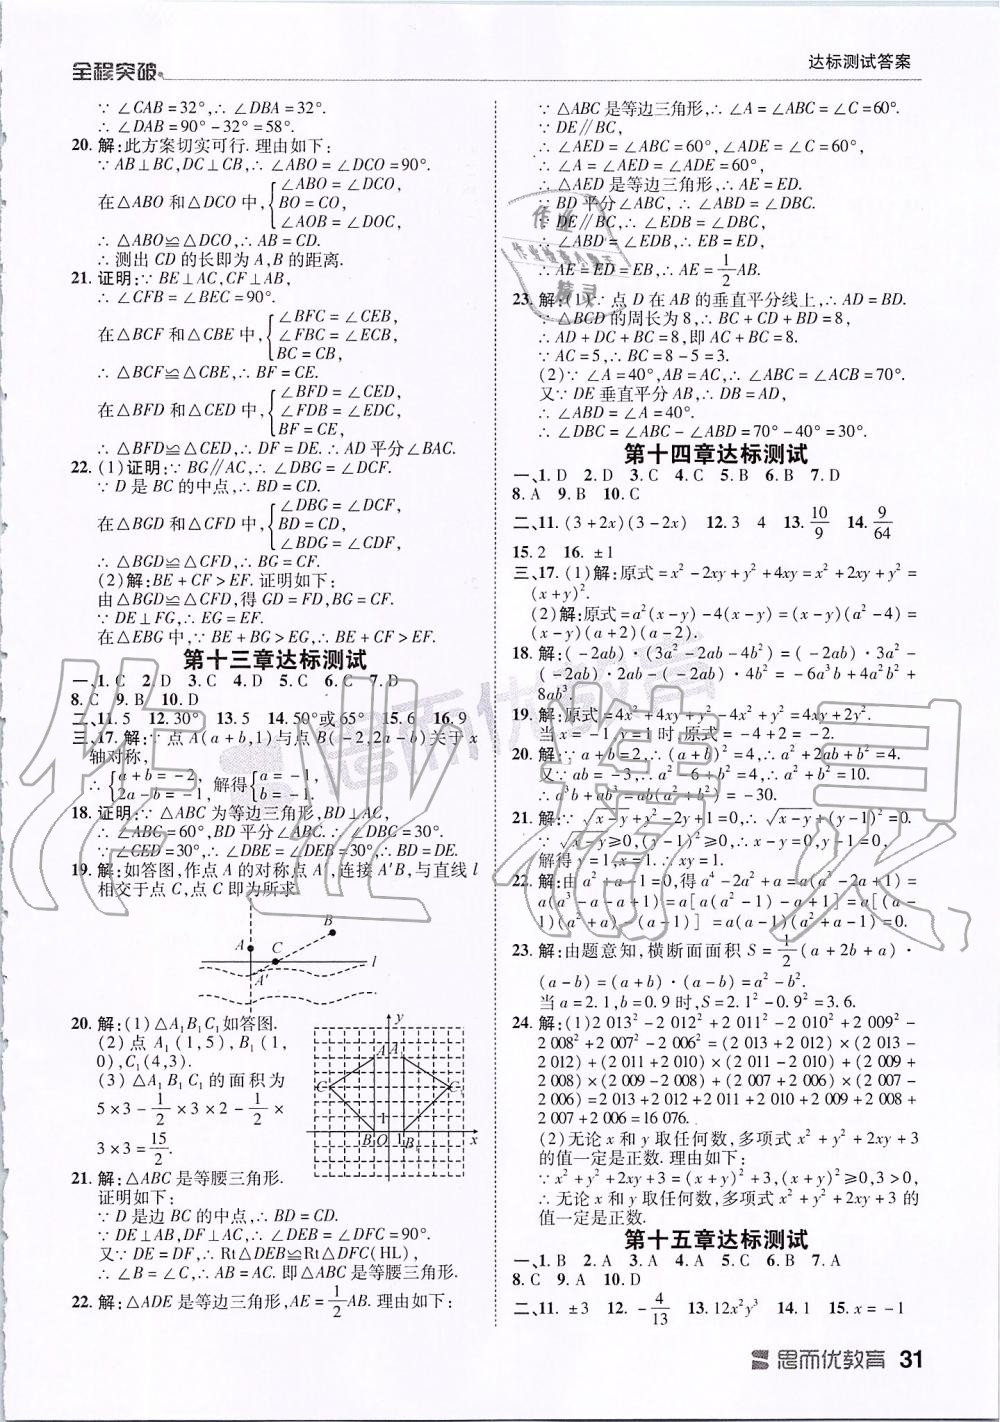 全程突破
达标测试答案
∵ ∠CAB=32°,∴ ∠DBA=32°.
∴ ∠DAB=90°-32°=58°.
20. 解:此方案切实可行. 理由如下:
∵ AB⊥BC,DC⊥CB,∴ ∠ABO=∠DCO=90°.
在△ABO 和△DCO 中,{∠ABO=∠DCO,
BO=CO,
∠AOB=∠DOC,
∴ △ABO≌△DCO,∴ AB=CD.
∴ 测出 CD 的长即为 A,B 的距离.
21. 证明:∵ BE⊥AC,CF⊥AB,
∴ ∠CFB=∠BEC=90°.
在△BCF 和△CBE 中,{∠BFC=∠CEB,
∠FBC=∠ECB,
BC=CB,
∴ △BCF≌△CBE,∴ BF=CE.
在△BFD 和△CED 中,{∠BFD=∠CED,
∠FDB=∠EDC,
BF=CE,
∴ △BFD≌△CED,∴ DF=DE.∴ AD 平分∠BAC.
22. (1)证明:∵ BG∥AC,∴ ∠DBG=∠DCF.
∵ D 是 BC 的中点,∴ BD=CD.
在△BGD 和△CFD 中,{∠DBG=∠DCF,
BD=CD,
∠BDG=∠CDF,
∴ △BGD≌△CFD,∴ BG=CF.
(2)解:BE+CF>EF. 证明如下:
由△BGD≌△CFD,得 GD=FD,BG=CF.
∵ DE⊥FG,∴ EG=EF.
在△EBG 中,∵ BE+BG>EG,∴ BE+CF>EF.
第十三章达标测试
一、1. C 2. D 3. C 4. D 5. C 6. C 7. D
8. C 9. B 10. D
二、11. 5 12. 30° 13. 5 14. 50°或 65° 15. 6 16. 9
三、17. 解:∵ 点 A(a+b,1)与点 B(-2,2a-b)关于 x
轴对称,
∴ {a+b=-2, 解得{a=-1,
2a-b=-1, b=-1.
18. 证明:∵ △ABC 为等边三角形,BD⊥AC,
∴ ∠ABG=60°,BD 平分∠ABC.∴ ∠DBC=30°.
∵ ∠CED=30°,∴ ∠DBE=∠DEB=30°,∴ BD=DE.
19. 解:如答图,作点 A 的对称点 A′,连接 A′B,与直线 l
相交于点 C,点 C 即为所求
B
A C l
A′
20. 解:(1)△A₁B₁C₁如答图.
(2)点 A₁(1,5),B₁(1,
0),C₁(4,3).
(3)△A₁B₁C₁的面积为
5×3-1/2×3×2-1/2×
3×3=15/2.
y
A A₁
C C₁
1
B O 1 B₁ x
21. 解:△ABC 是等腰三角形.
证明如下:
∵ D 是边 BC 的中点,∴ BD=CD.
∵ DE⊥AB,DF⊥AC,∴ ∠DEB=∠DFC=90°.
又∵ DE=DF,∴ Rt△DEB≌Rt△DFC(HL),
∴ ∠B=∠C,∴ AB=AC. 即△ABC 是等腰三角形.
22. 解:△ADE 是等边三角形,AE=1/2AB. 理由如下:
∵ △ABC 是等边三角形,∴ ∠A=∠ABC=∠C=60°.
∵ DE∥BC,
∴ ∠AED=∠ABC=60°,∠ADE=∠C=60°,
∴ ∠A=∠AED=∠ADE=60°.
∴ △AED 是等边三角形,∴ AE=ED.
∵ BD 平分∠ABC,∴ ∠ABD=∠DBC.
∵ DE∥BC,∴ ∠EDB=∠DBC,
∴ ∠ABD=∠EDB,∴ EB=ED,
∴ AE=ED=EB,∴ AE=1/2AB.
23. 解:(1)∵ 点 D 在 AB 的垂直平分线上,∴ AD=BD.
∵ △BCD 的周长为 8,∴ BC+CD+BD=8,
∴ AD+DC+BC=8,即 AC+BC=8.
∵ AC=5,∴ BC=8-5=3.
(2)∵ ∠A=40°,AB=AC,∴ ∠ABC=∠ACB=70°.
又∵ DE 垂直平分 AB,∴ DB=AD,
∴ ∠ABD=∠A=40°.
∴ ∠DBC=∠ABC-∠ABD=70°-40°=30°.
第十四章达标测试
一、1. D 2. D 3. C 4. C 5. B 6. B 7. D
8. A 9. B 10. C
二、11. (3+2x)(3-2x) 12. 3 4 13. 10/9 14. 9/64
15. 2 16. ±1
三、17. (1)解:原式=x²-2xy+y²+4xy=x²+2xy+y²=
(x+y)².
(2)解:原式=a²(x-y)-4(x-y)=(x-y)(a²-4)=
(x-y)(a+2)(a-2).
18. 解:(-2ab)·(3a²-2ab-4b²)=(-2ab)·3a²-
(-2ab)·2ab-(-2ab)·4b²=-6a³b+4a²b²+
8ab³.
19. 解:原式=4x²+4xy+y²-4x²+y²=4xy+2y².
当 x=-1,y=1 时,原式=-4+2=-2.
20. 解:∵ a+b=2,∴ (a+b)²=4,∴ a²+2ab+b²=4.
又∵ ab=-3,∴ a²-6+b²=4,∴ a²+b²=10.
∴ a³b+ab³=ab(a²+b²)=-30.
21. 解:∵ √x-y+y²-2y+1=0,∴ √x-y+(y-1)²=0.
∵ √x-y≥0,(y-1)²≥0,∴ x-y=0,y-1=0,
解得 y=1,x=1.∴ xy=1.
22. 解:由 a²+a-1=0,得 a⁴-2a²+a=a(a³-2a+1)=
a(a³-a-a+1)=a[a(a²-1)-a+1]=a[a(a-
1)(a²+a)-(a-1)]=a(a-1)(a²+a-1)=0.
23. 解:由题意知,横断面面积 S=1/2(a+2b+a)·
(a-b)=(a+b)·(a-b)=a²-b².
当 a=2.1,b=0.9 时,S=2.1²-0.9²=3.6.
24. 解:(1)2 013²-2 012²+2 011²-2 010²+2 009²-
2 008²+2 007²-2 006²=(2 013+2 012)×(2 013-
2 012)+(2 011+2 010)×(2 011-2 010)+(2 009+
2 008)×(2 009-2 008)+(2 007+2 006)×(2 007-
2 006)=2 013+2 012+2 011+2 010+2 009+2 008+
2 007+2 006=16 076.
(2)无论 x 和 y 取任何数,多项式 x²+y²+2xy+3
的值一定是正数. 理由如下:
∵ x²+y²+2xy+3=(x+y)²+3,(x+y)²≥0,3>0,
∴ 无论 x 和 y 取任何数,多项式 x²+y²+2xy+3 的
值一定是正数.
第十五章达标测试
一、1. B 2. A 3. A 4. A 5. C 6. B 7. A
8. C 9. A 10. D
二、11. ±3 12. -4/13 13. 12x²y³ 14. 1 15. x=-1
思而优教育 31
作业精灵